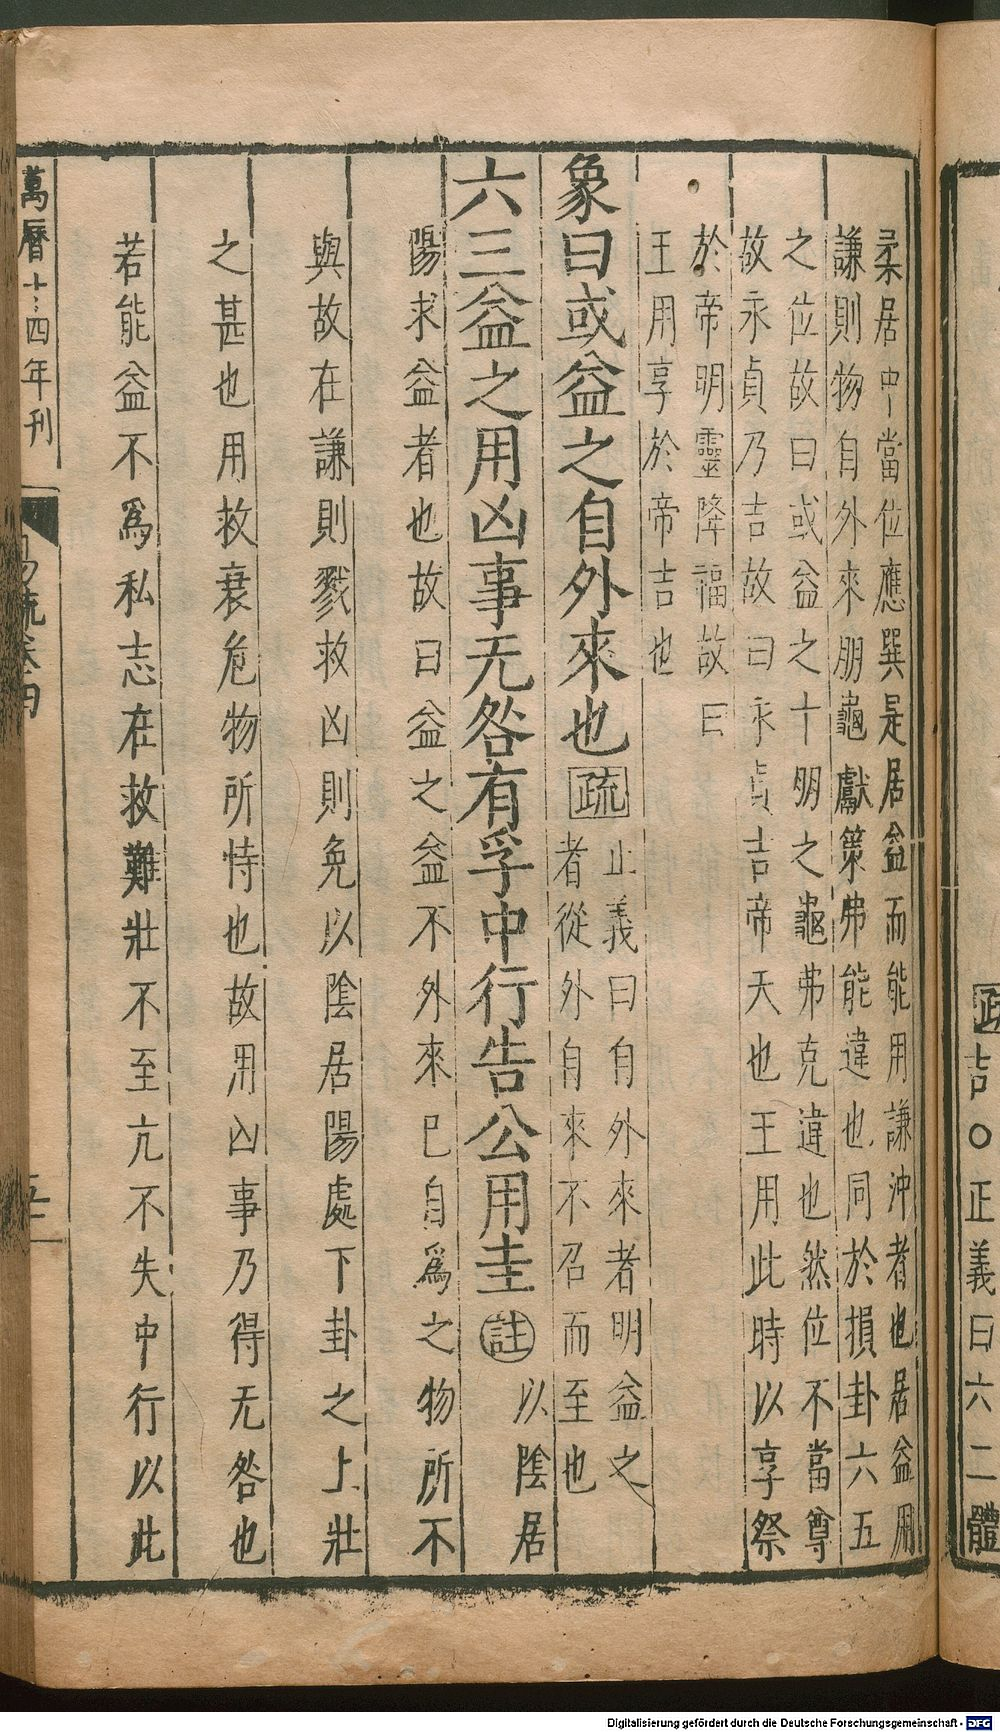 柔居中當位應巽是居益而能用謙沖者也居益用
謙則物自外來朋龜獻策弗能違也同於損卦六五
之位故曰或益之十朋之龜弗克違也然位不當尊
故永貞乃吉故曰永貞吉帝天也王用此時以享祭
於帝明靈降福故曰
王用享於帝吉也
象曰或益之自外來也疏
正義曰自外來者明益之
者從外自來不召而至也
六三益之用凶事无咎有孚中行告公用圭註以陰居
陽求益者也故曰益之益不外來巳自爲之物所不
與故在謙則戮救凶則免以陰居陽處下卦之上壯
之甚也用救衰危物所恃也故用凶事乃得无咎也
若能益不爲私志在救難壯不至亢不失中行以此
萬曆十四年刊
易疏卷四
疏
吉○正義曰六二體
Digitalisierung gefördert durch die Deutsche Forschungsgemeinschaft - DFG